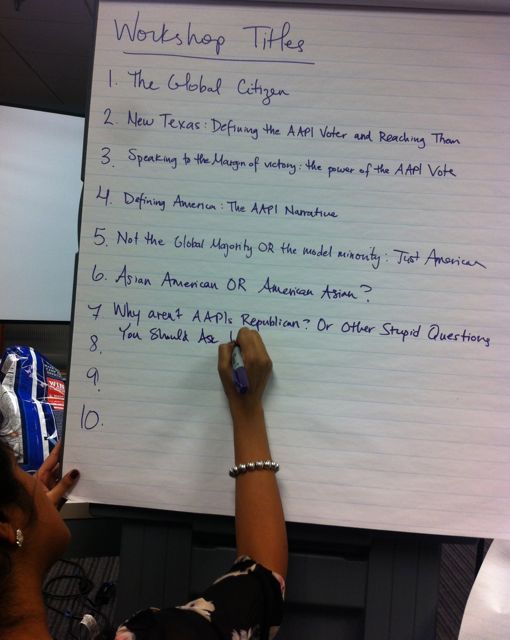 Workshop Titles
1. The Global Citizen
2. New Texas: Defining the AAPI Voter and Reaching Them
3. Speaking to the Margin of victory: the power of the AAPI Vote
4. Defining America: The AAPI Narrative
5. Not the Global Majority OR the model minority: Just American
6. Asian American OR American Asian?
7 Why aren't AAPIs Republican? Or Other Stupid Questions
You Should Ask
8.
9.
10.